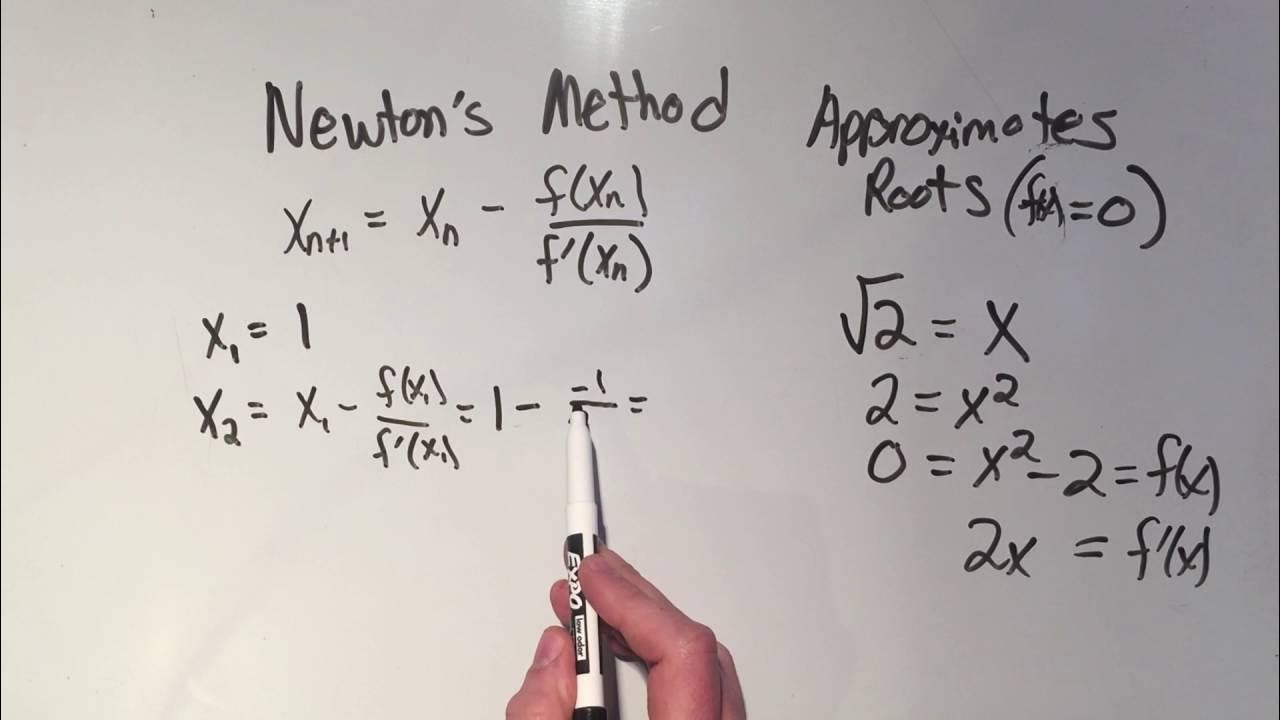 Newton's Method
x_{n+1} = x_n - f(x_n) / f'(x_n)
x_1 = 1
x_2 = x_1 - f(x_1) / f'(x_1) = 1 - -1 / =
Approximates
Roots (f(x)=0)
√2 = x
2 = x²
0 = x² - 2 = f(x)
2x = f'(x)
EXPO
low odor